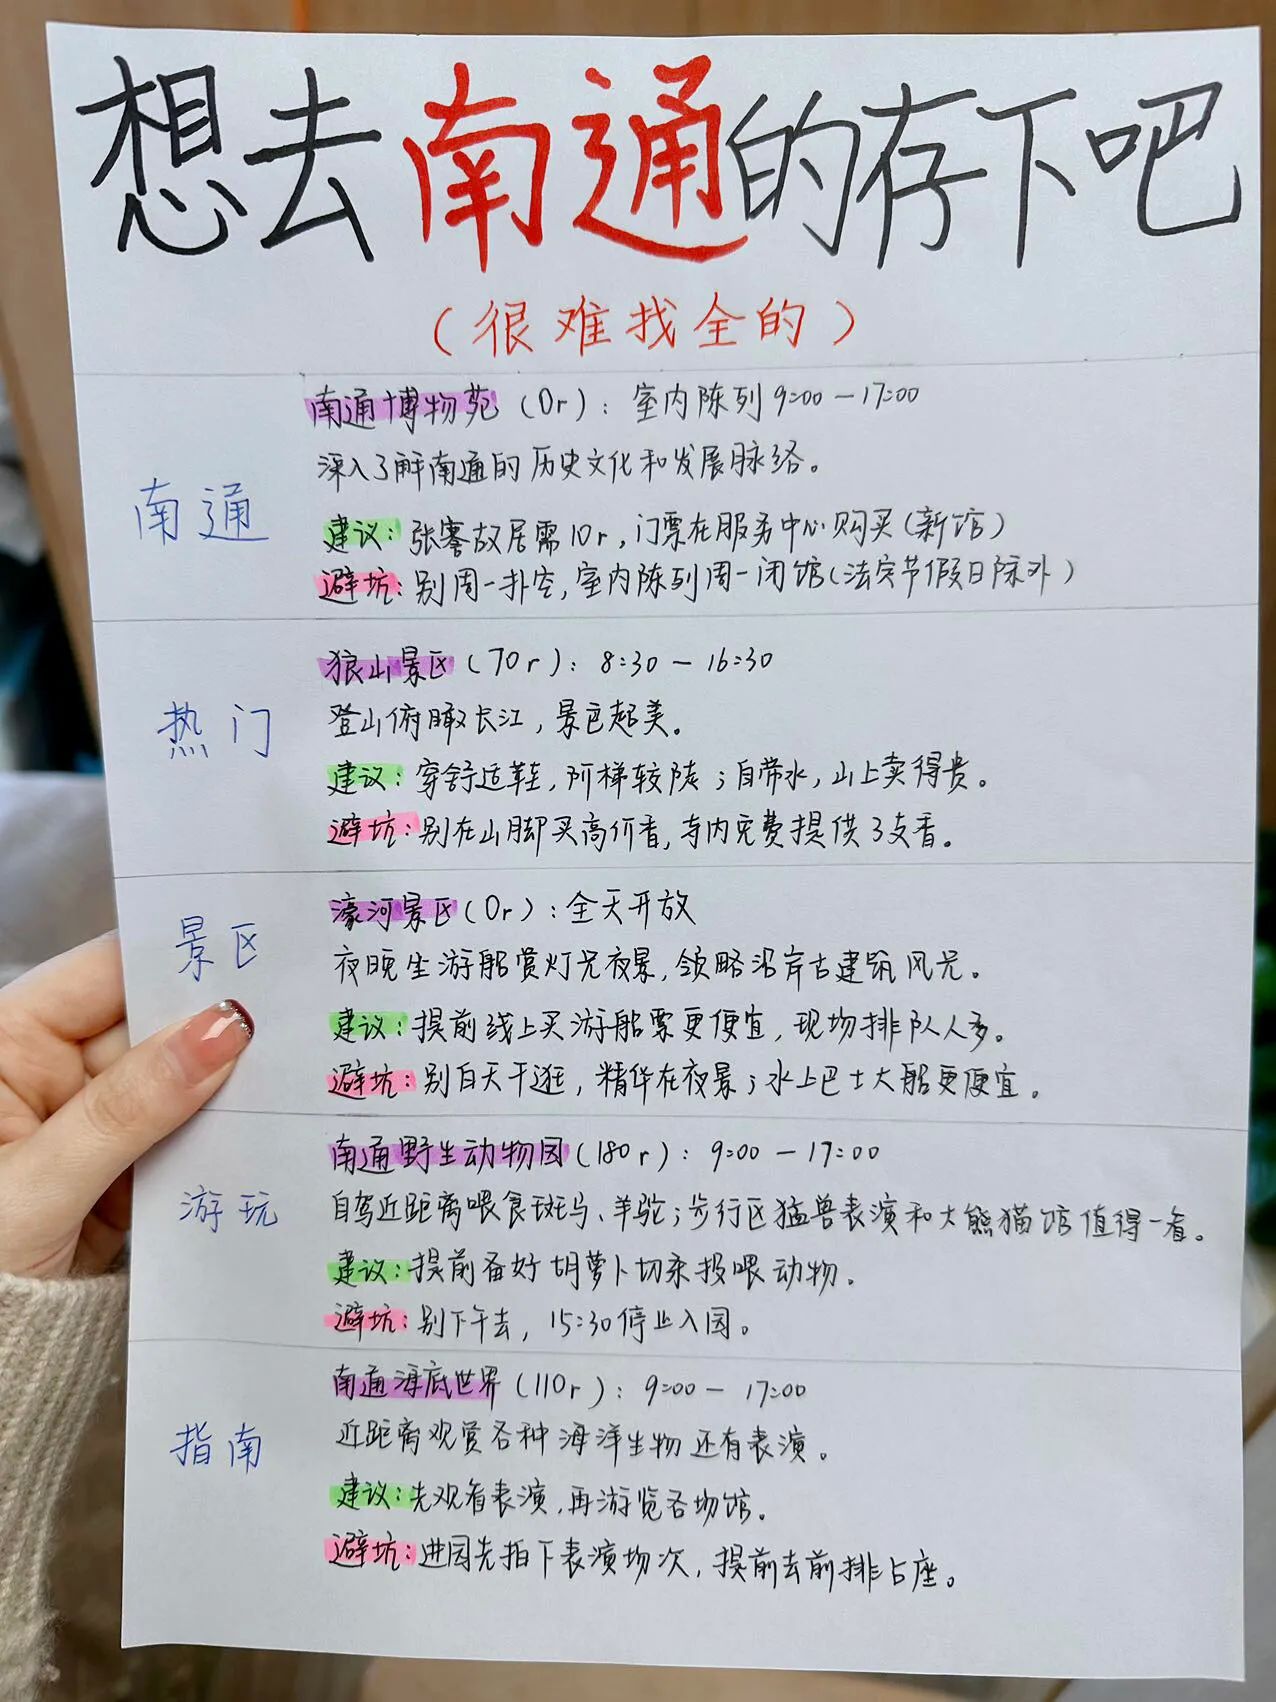 想去南通的存下吧
(很难找全的)
南通
南通博物苑(0r): 室内陈列9:00-17:00
深入了解南通的历史文化和发展脉络。
建议: 张謇故居需10r,门票在服务中心购买(新馆)
避坑: 别周一扑空,室内陈列周一闭馆(法定节假日除外)
热门
狼山景区(70r): 8:30-16:30
登山俯瞰长江,景色超美。
建议: 穿舒适鞋,阶梯较陡;自带水,山上卖得贵。
避坑: 别在山脚买高价香,寺内免费提供3支香。
景区
濠河景区(0r): 全天开放
夜晚坐游船赏灯光夜景,领略沿岸古建筑风光。
建议: 提前线上买游船票更便宜,现场排队人多。
避坑: 别白天干逛,精华在夜景;水上巴士大船更便宜。
游玩
南通野生动物园(180r): 9:00-17:00
自驾近距离喂食斑马、羊驼;步行区猛兽表演和大熊猫馆值得一看。
建议: 提前备好胡萝卜切条投喂动物。
避坑: 别下午去,15:30停止入园。
指南
南通海底世界(110r): 9:00-17:00
近距离观赏各种海洋生物还有表演。
建议: 先观看表演,再游览各场馆。
避坑: 进园先拍下表演场次,提前去前排占座。